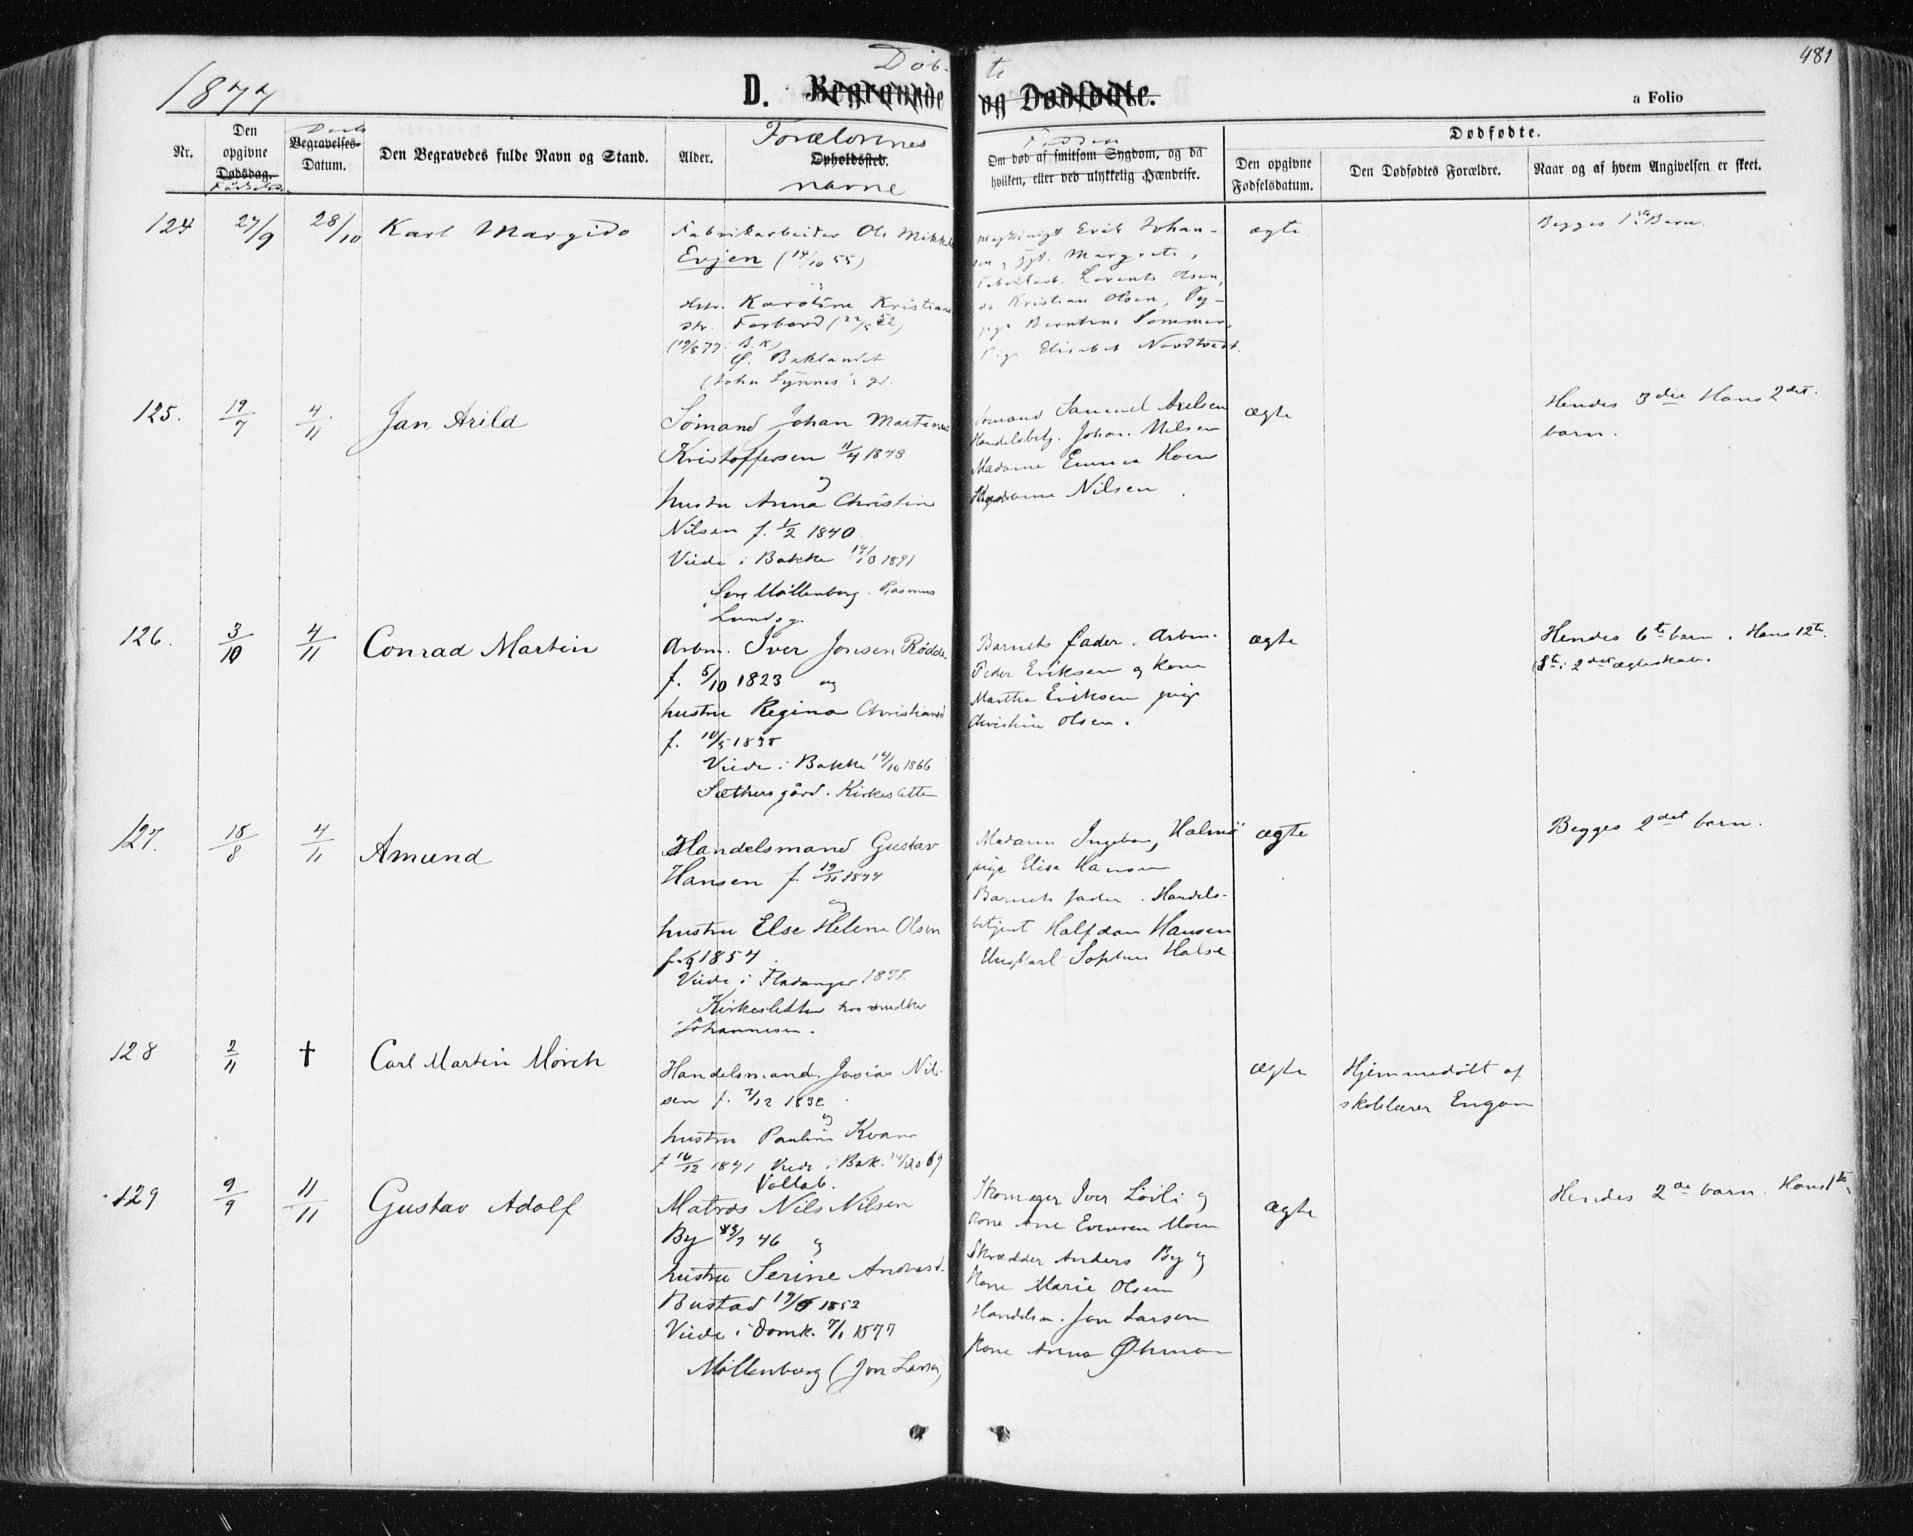 481
1877
Døb-
te
D. Begravede og Dødfødte.
a Folio
Nr.
Den opgivne Dødsdag.
Fødsels
Daabs
Begravelses-
Datum.
Den Begravedes fulde Navn og Stand.
Alder.
Forældrenes
Opholdssted.
navne
Faddere
Om død af smitsom Sygdom, og da
hvilken, eller ved ulykkelig Hændelse.
Dødfødte.
Den opgivne
Fødselsdatum.
Den Dødfødtes Forældre.
Naar og af hvem Angivelsen er skeet.
124
27/9
28/10
Karl Margido
Fabrikarbeider Ole Mikkel
Evjen (14/10 55)
og
Hstr. Karoline Kristians
dtr. Forbord (22/5 52)
(19/8 77. B. K.)
Ø. Baklandet
(John Lynnes's gd.
Erik Johan-
sen, Margrete,
Lorents Olsen,
do. Kristian Olsen, Py-
ge Berntine Sommer,
Pige Elisabet Nordtvedt.
ægte
Begges 1ste Barn.
125.
19/7
4/11
Jan Arild
Sømand Johan Martinus
Kristoffersen 11/4 1848
og
hustru Anna Christine
Nilsen f. 1/2 1840
Viede i Bakke 1871
Øvre Møllenberg. Rasmus
Lunds g.
Sømand Samuel Axelsen
Handelsbetj. Johan Nilsen
Madame Emma Hoen
Madame Nilsen.
ægte
Hendes 3die Hans 2det.
barn.
126.
3/10
4/11
Conrad Martin
Arbm. Iver Jonsen Rødde
f. 5/10 1823 og
hustru Regina Christiansd
f. 10/5 1838
Viede i Bakke 14/10 1866
Sæthersgård. Kirkesletten
Barnets fader. Arbm.
Peder Eriksen og kone
Martha Eriksen pige
Christine Olsen.
ægte
Hendes 6te barn. Hans 12te.
8te i 2det ægteskab.
127.
18/8
4/11
Amund
Handelsmand Gustav
Hansen f. 19/11 1844
og
hustru Else Helene Olsen
f. 1854.
Viede i Fladanger 1875.
Kirkesletten hos snedker
Johannesen.
Madam Ingeborg Halmø
pige Elisa Hansen
Barnets fader. Handels-
betjent Halfdan Hansen
Ungkarl Sophus Halse
ægte
Begges 2det barn.
128
2/11
†
Carl Martin Mörch
Handelsmand Josias Nil-
sen f. 2/12 1832.
og
hustru Pauline Kvam
f 16/12 1841 Viede i Bak. 69
Vollab.
ægte
Hjemmedøbt af
skolelærer Engan
129
9/9
11/11
Gustav Adolf
Matros Nils Nilsen
By 23/7 46 og
hustru Serine Andersd.
Bustad 19/6 1852
Viede i Domk. 7/1 1877
Møllenberg (Jon Larsen)
Skomager Iver Løvli og
kone Ane Evensen Moen
Skrædder Anders By og
kone Marie Olsen
Handelsm. Jon Larsen
kone Anna Øhman
ægte
Hendes 2de barn. Hans 1ste.